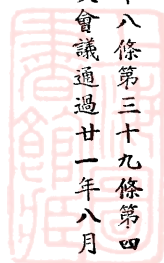 八條第三十九條第四
會議通過廿一年八月